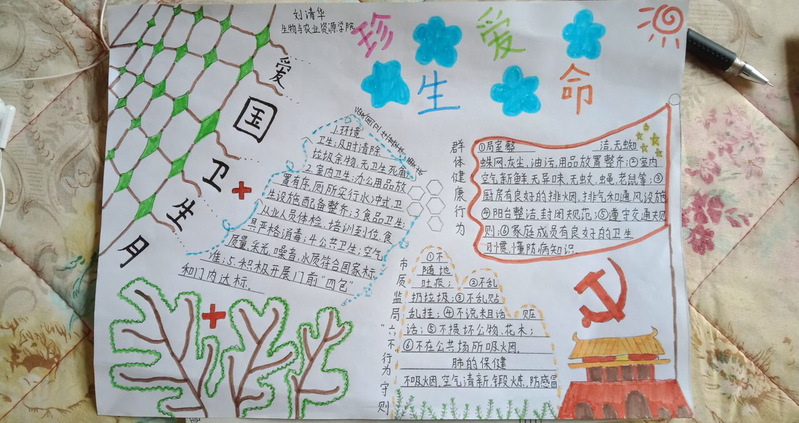 刘清华
生物与农业资源学院
珍爱生命
爱国卫生月
1.环境
卫生:及时清除
垃圾杂物,无卫生死角;
2.室内卫生:办公用品放
置有序,厕所实行水冲式,卫
生设施配备整齐;3.食品卫生:
从业人员体检,培训到位,食
具严格消毒;4.公共卫生:空气
质量,采光,噪音,水质符合国家标
准;5.积极开展门前"四包"
和门内达标.
群体健康行为
①居室整 洁,无蜘
蛛网,灰尘,油污,用品放置整齐;②室内
空气新鲜无异味,无蚊,蝇,老鼠等;③
厨房有良好的排烟,排气和通风设施
④阳台整洁,封闭规范;⑤遵守交通规
则;⑥家庭成员有良好的卫生
习惯,懂防病知识.
市质监局"六不行为"守则
①不
随地
吐痰; ②不乱
扔垃圾;③不乱贴
乱挂;④不说粗话、脏
话;⑤不损坏公物、花木;
⑥不在公共场所吸烟.
肺的保健
不吸烟,空气清新,锻炼,防感冒